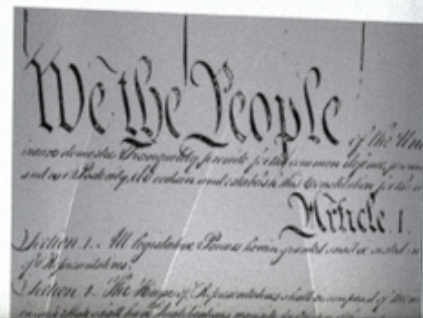 We the People of the Uni
insure domestic Tranquility, provide for the common defence, promo
and our Posterity, do ordain and establish this Constitution for the
Article I.
Section 1. All legislative Powers herein granted shall be vested in
of Representatives.
Section 2. The House of Representatives shall be composed of Mem
in each State shall have Qualifications requisite for